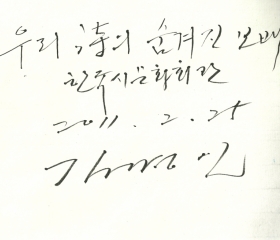 우리 詩의 숨겨진 보배
한국시문학회관
2011. 2. 25